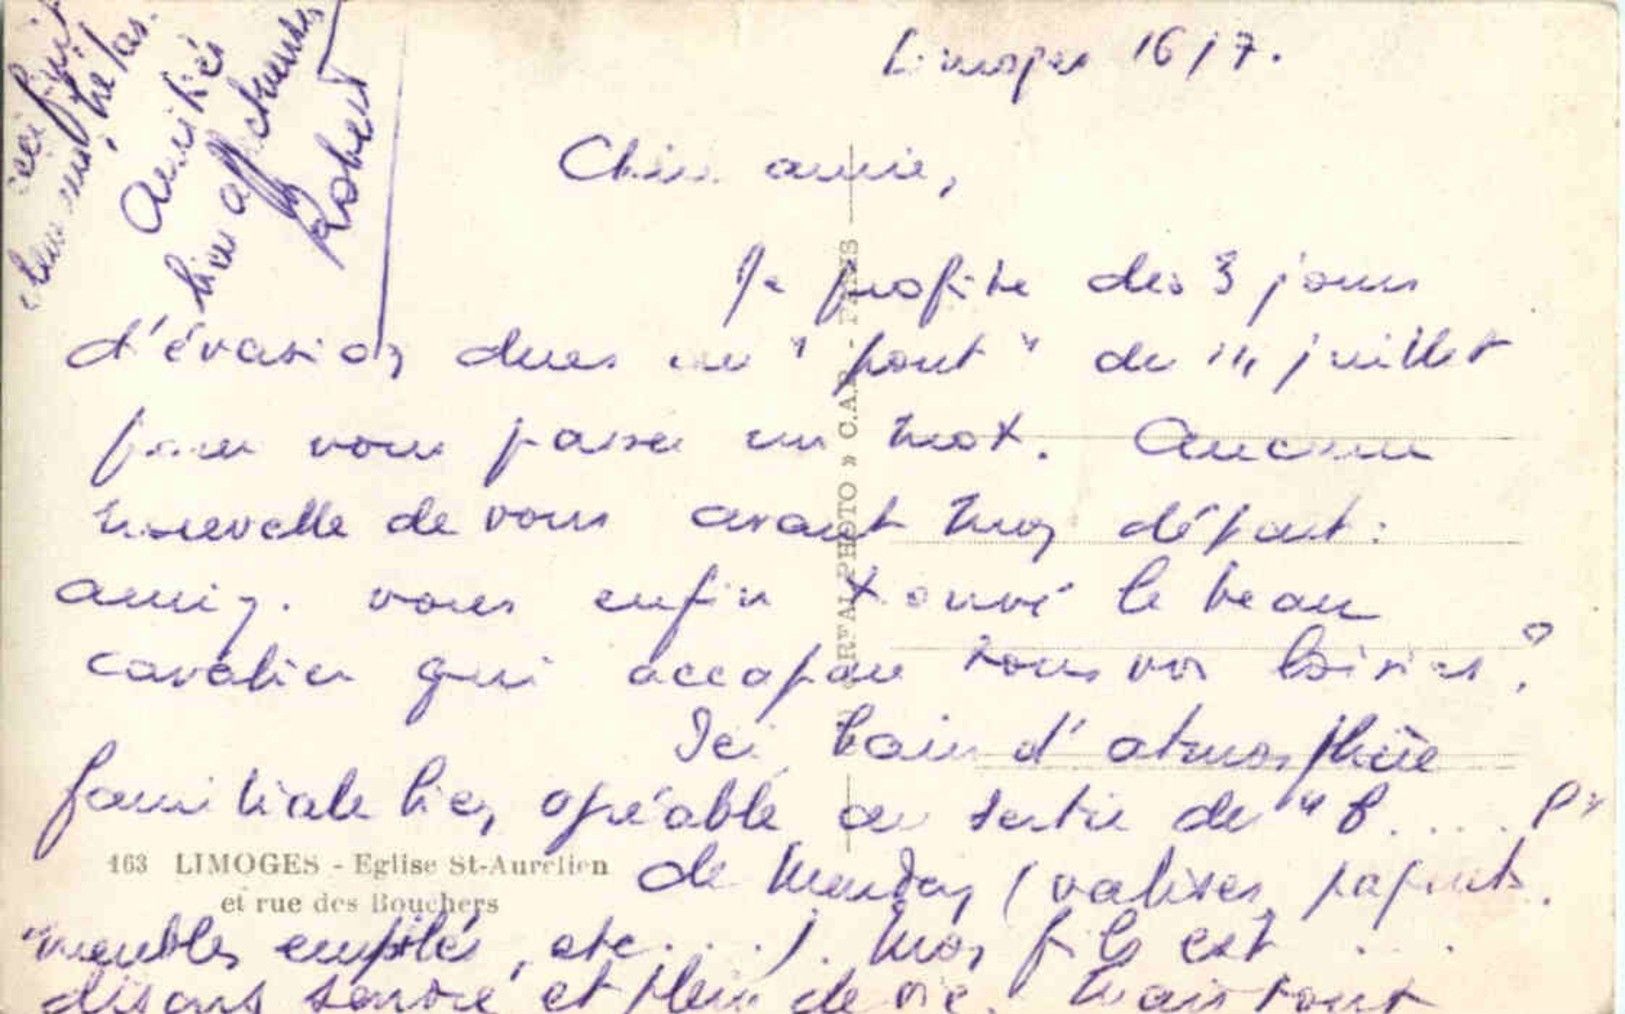 Limoges 16/7.
Chère amie,
Je profite des 3 jours
d'évasion dues au "pont" du 14 juillet
pour vous passer un mot. Aucune
nouvelle de vous avant mon départ :
vous enfin trouvé le beau
cavalier qui accapare tous vos loisirs ?
Ici bain d'atmosphère
familiale bien agréable au sortir de "B..... P"
de (valises, paquets,
meubles empilés, etc....). Mon fils est ...
disons sevré et plein de vie. Mais tout
ceci finit
hélas.
Amitiés
bien affectueuses
Robert
163 LIMOGES - Eglise St-Aurélien
et rue des Bouchers
PHOTO » C.A.P. - PARIS